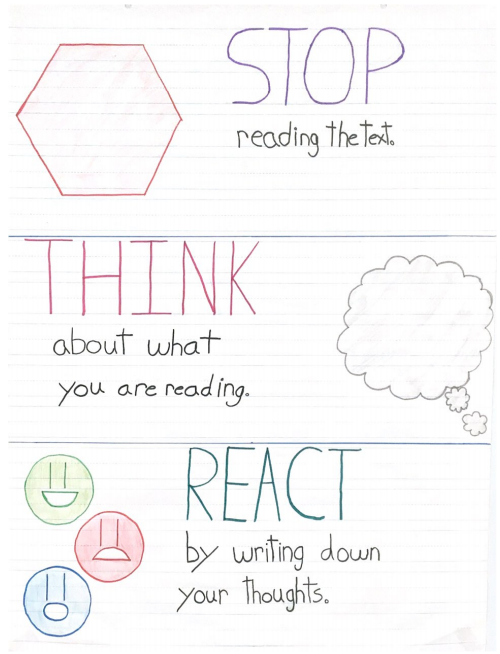 STOP
reading the text.
THINK
about what
you are reading.
REACT
by writing down
your thoughts.